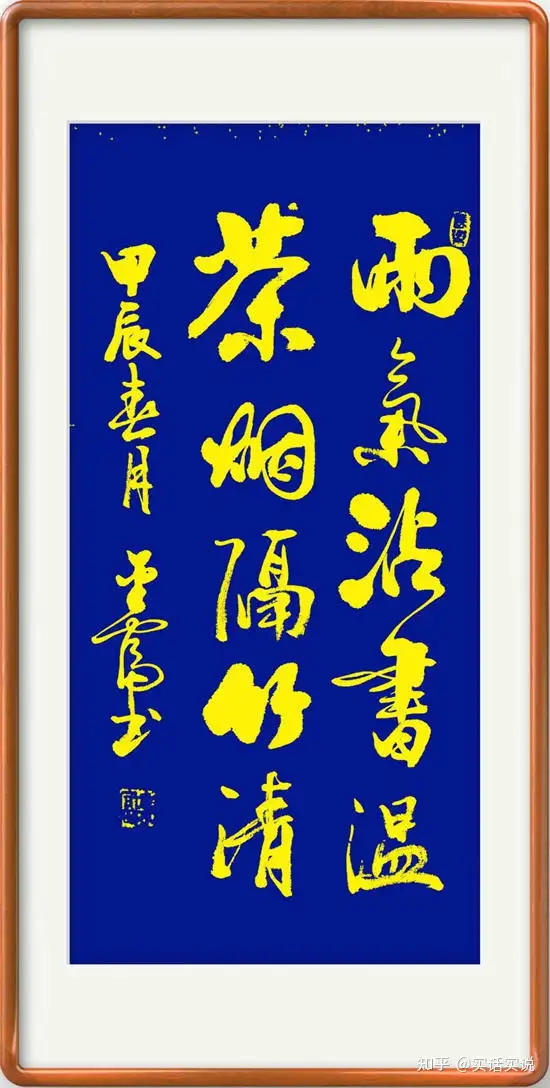 雨氣沾書溫
茶烟隔竹清
甲辰春月
書
知乎 @实话实说